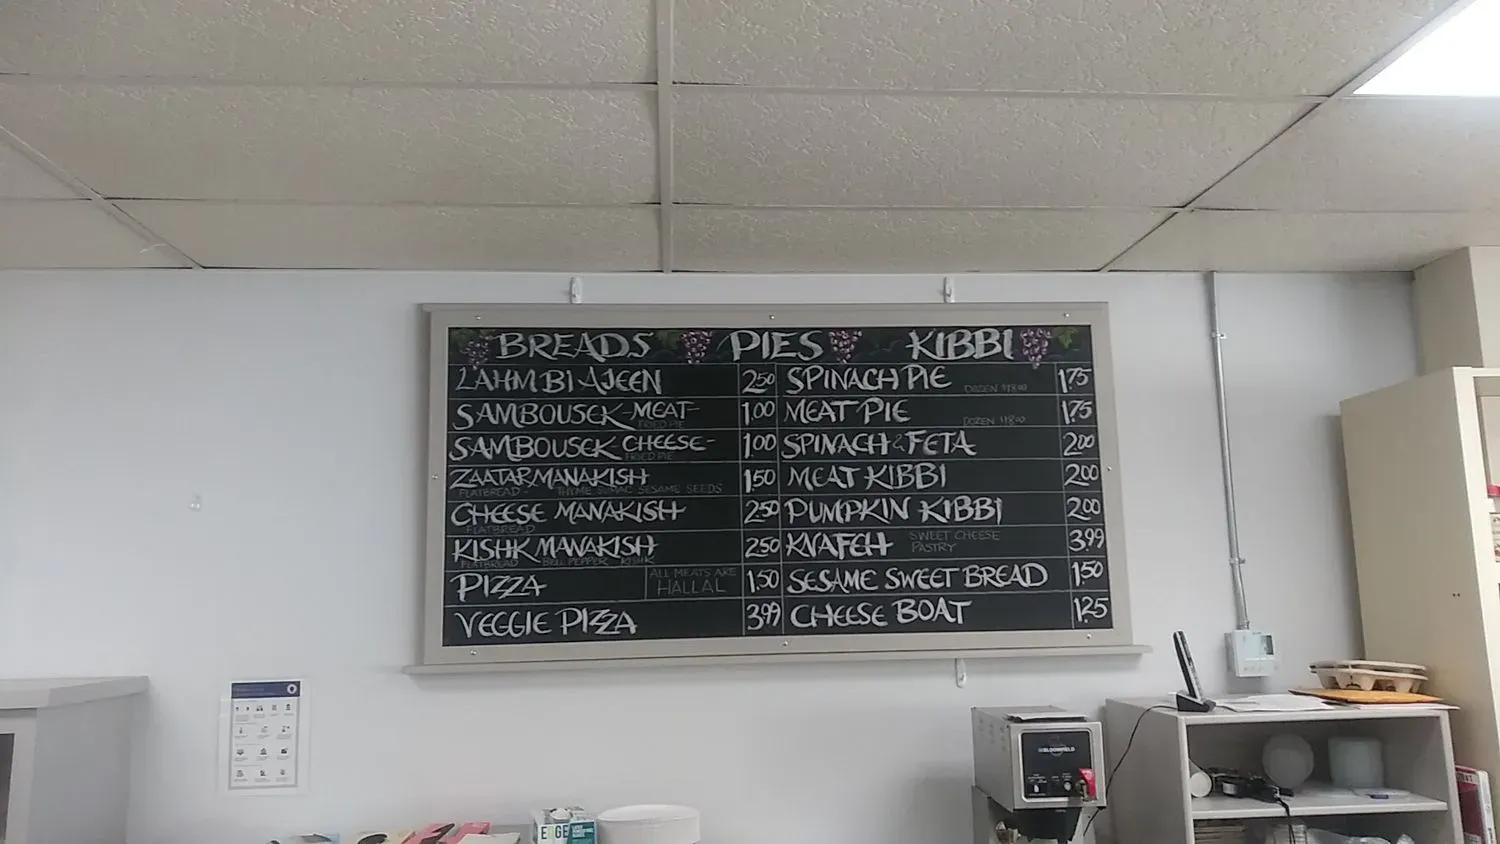 BREADS PIES KIBBI
LAHM BI AJEEN 2.50
SAMBOUSEK -MEAT- 1.00
FRIED PIE
SAMBOUSEK CHEESE- 1.00
FRIED PIE
ZAATAR MANAKISH 1.50
FLATBREAD - THYME SUMAC SESAME SEEDS
CHEESE MANAKISH 2.50
FLATBREAD
KISHK MANAKISH 2.50
FLATBREAD BELL PEPPER KISHK
PIZZA 1.50
ALL MEATS ARE
HALLAL
VEGGIE PIZZA 3.99
SPINACH PIE DOZEN $18.00 1.75
MEAT PIE DOZEN $18.00 1.75
SPINACH & FETA 2.00
MEAT KIBBI 2.00
PUMPKIN KIBBI 2.00
KNAFEH SWEET CHEESE
PASTRY 3.99
SESAME SWEET BREAD 1.50
CHEESE BOAT 1.25
BLOOMFIELD
EDGE